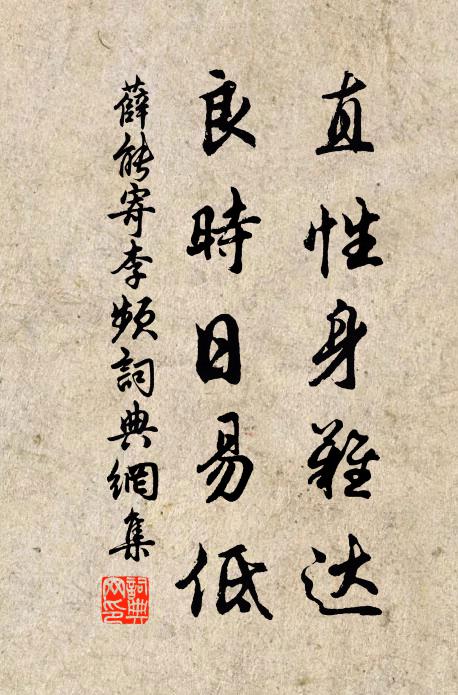 直性身難达
良時日易低
薛能寄李頻詞典網集
詞典网印